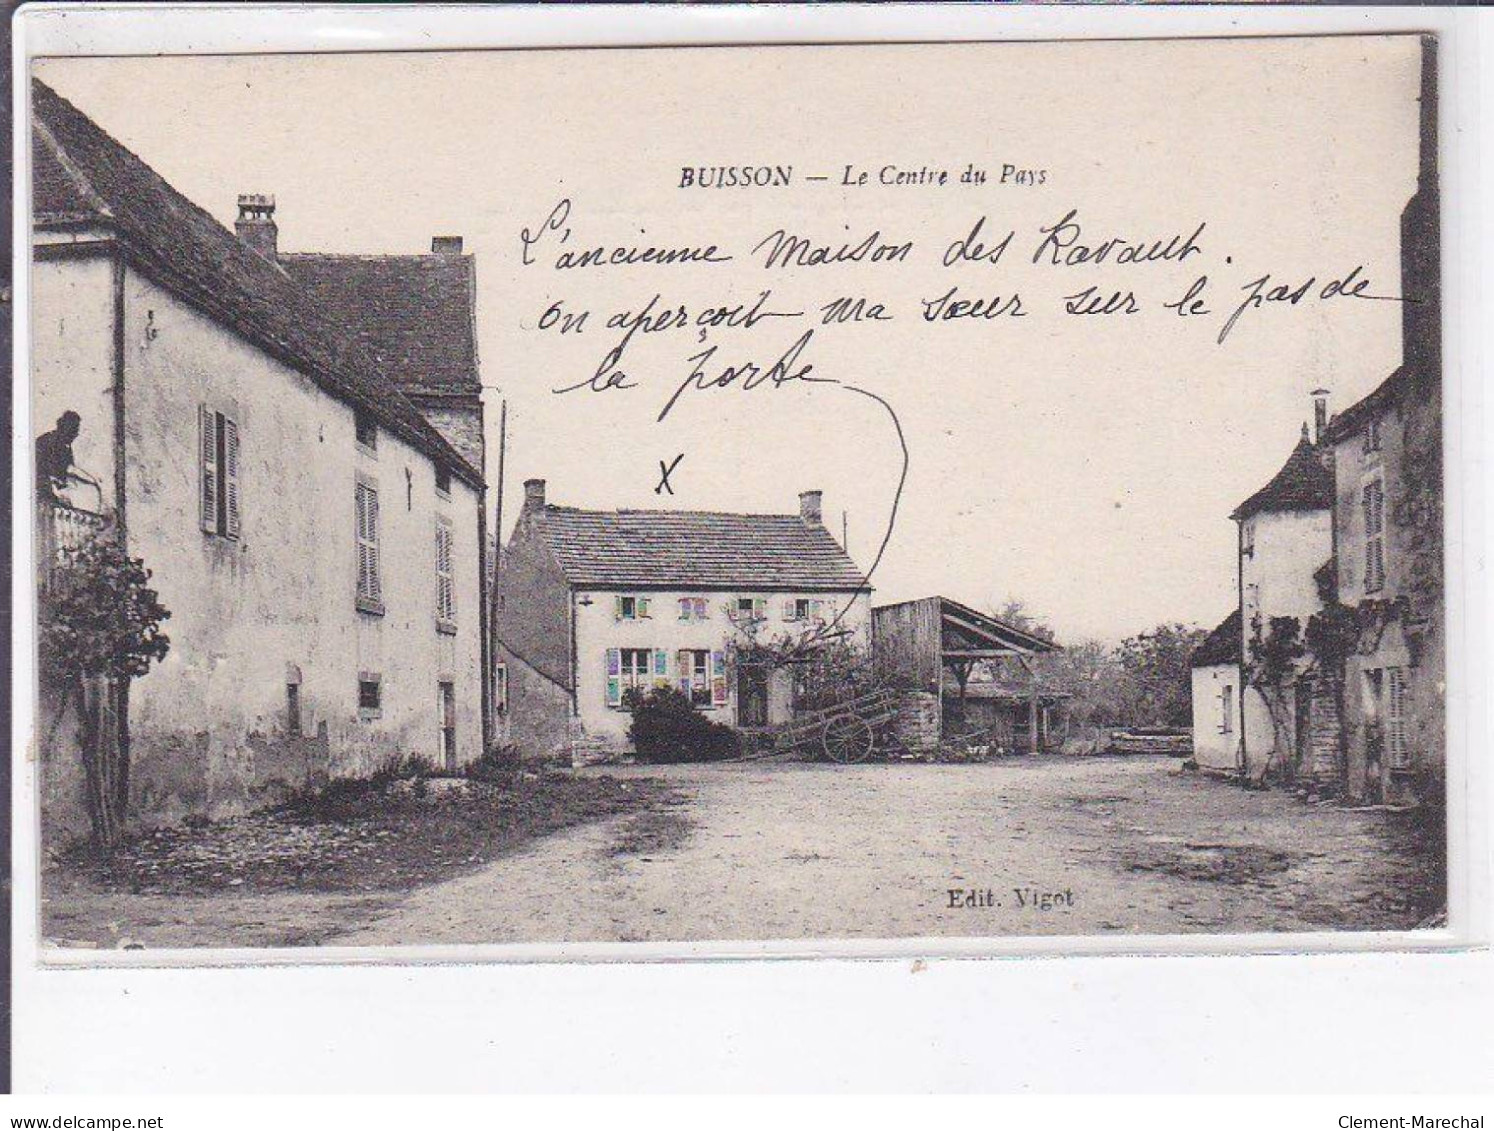 BUISSON — Le Centre du Pays
L'ancienne Maison des Ravaut.
On aperçoit ma sœur sur le pas de
la porte
X
Edit. Vigot
delcampe.net
Clement-Marechal